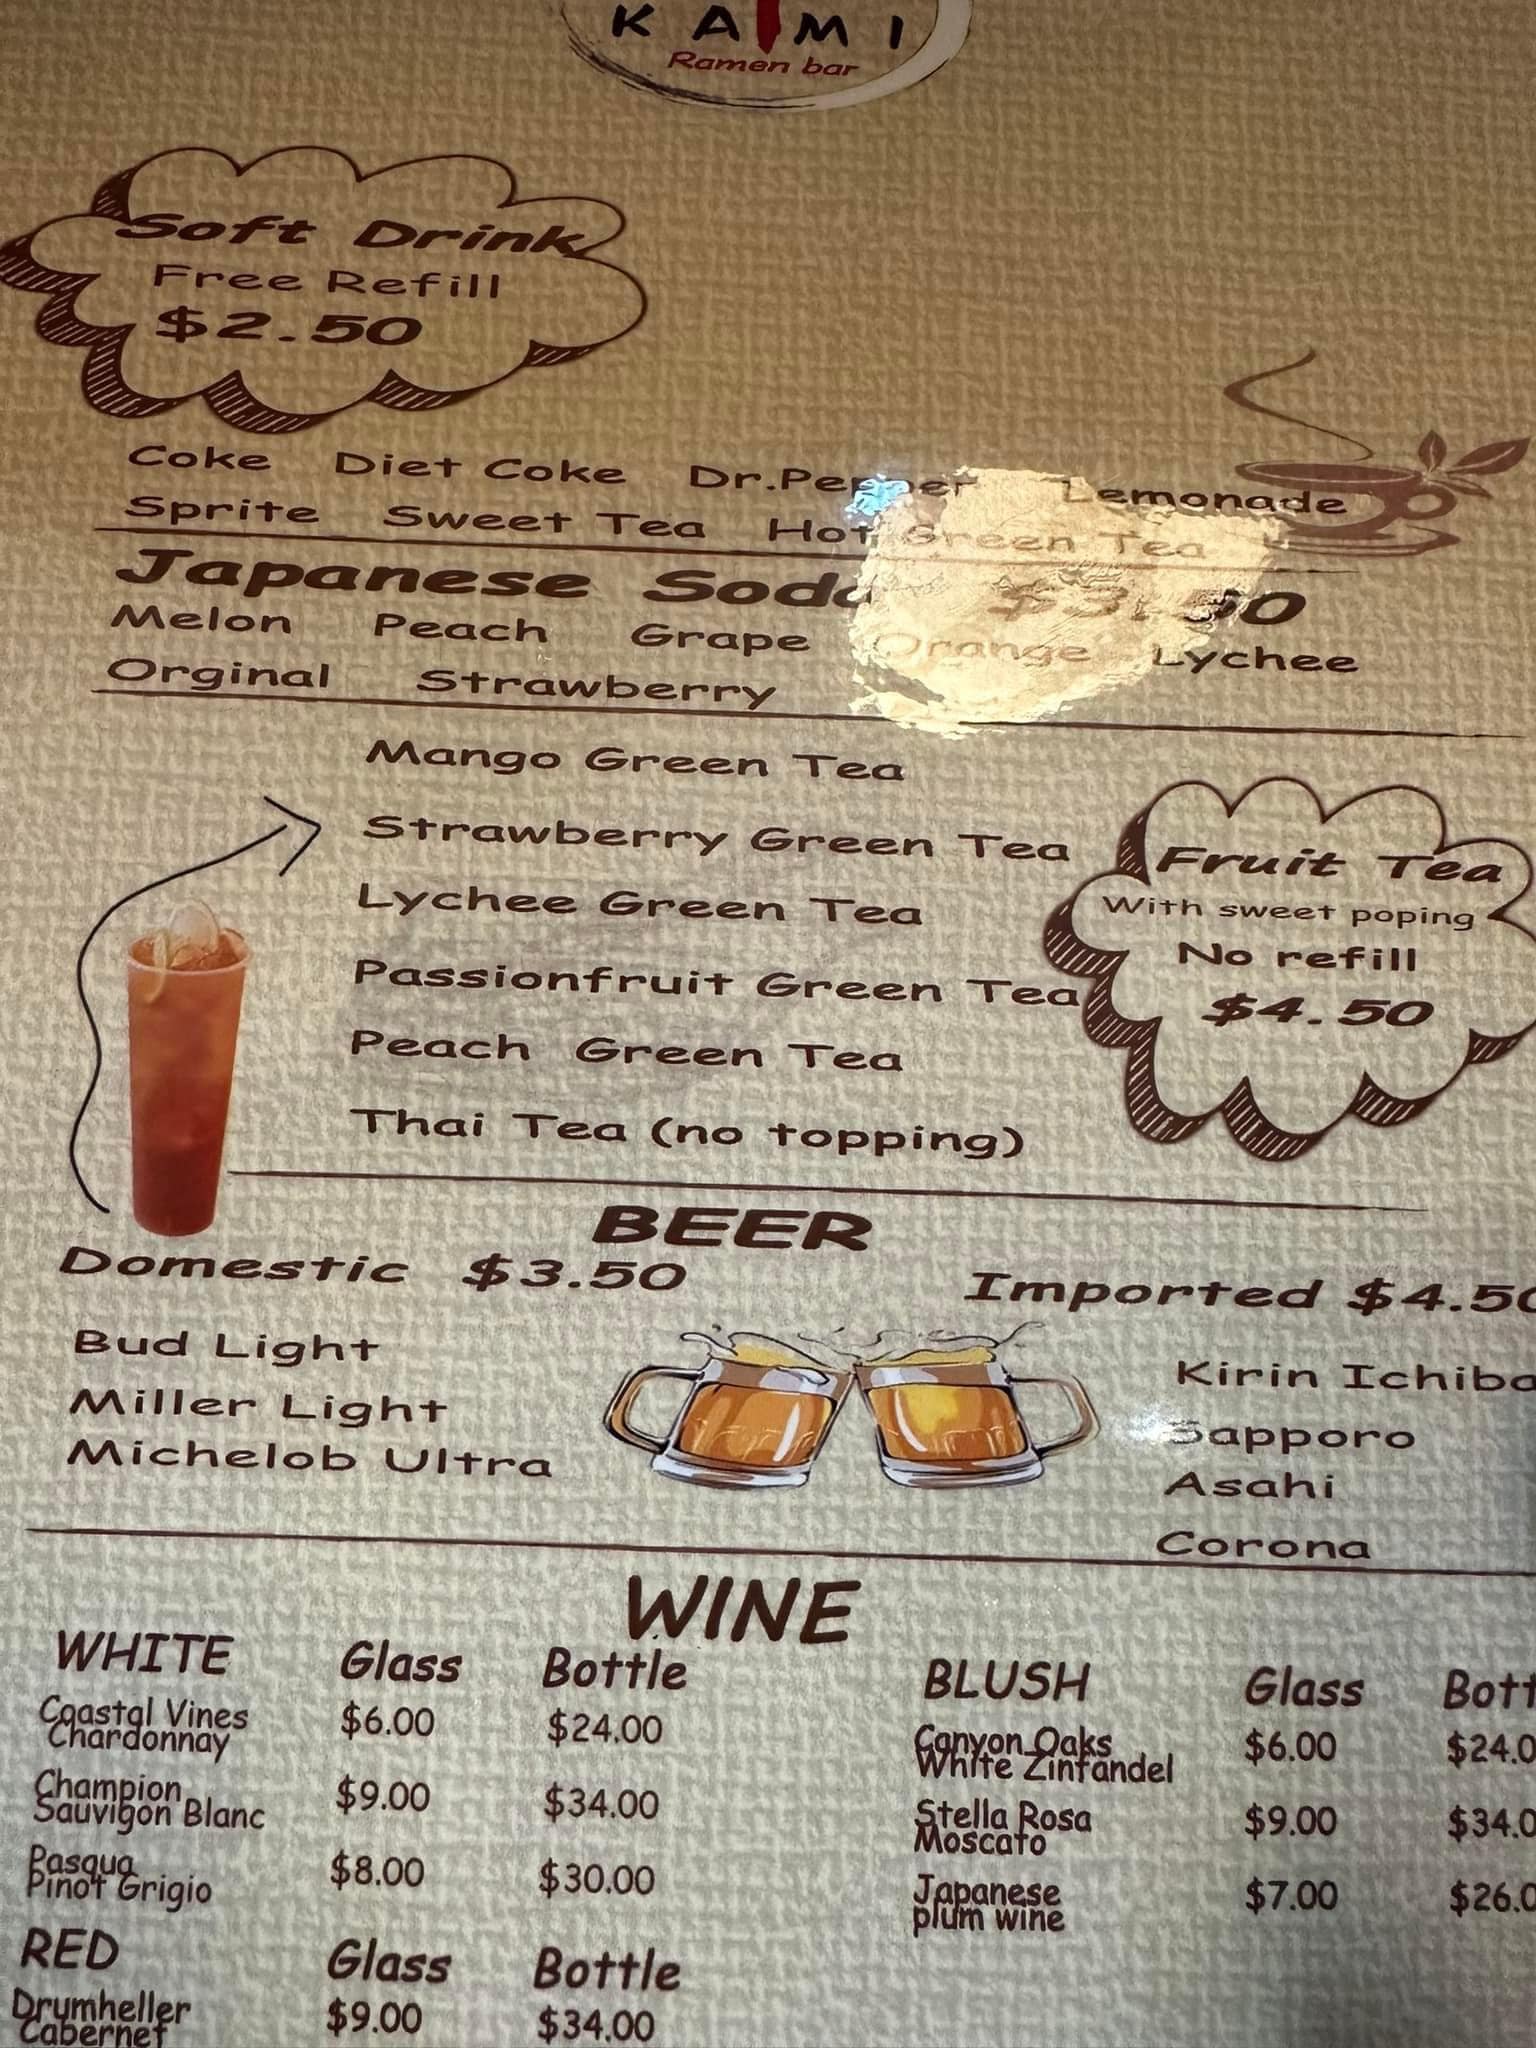 KAIMI
Ramen bar
Soft Drink
Free Refill
$2.50
Coke Diet Coke Dr.Pepper Lemonade
Sprite Sweet Tea Hot Green Tea
Japanese Soda
Melon Peach Grape Orange Lychee
Orginal Strawberry
Mango Green Tea
Strawberry Green Tea
Lychee Green Tea
Passionfruit Green Tea
Peach Green Tea
Thai Tea (no topping)
Fruit Tea
With sweet poping
No refill
$4.50
BEER
Domestic $3.50
Bud Light
Miller Light
Michelob Ultra
Imported $4.50
Kirin Ichiba
Sapporo
Asahi
Corona
WINE
WHITE Glass Bottle
Coastal Vines
Chardonnay $6.00 $24.00
Champion
Sauvigon Blanc $9.00 $34.00
Pasqua
Pinot Grigio $8.00 $30.00
RED Glass Bottle
Drumheller
Cabernet $9.00 $34.00
BLUSH Glass Bott
Canyon Oaks
White Zinfandel $6.00 $24.0
Stella Rosa
Moscato $9.00 $34.0
Japanese
plum wine $7.00 $26.0